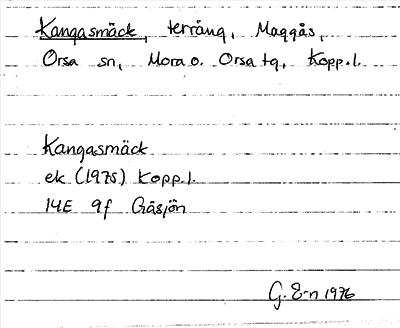 Kangasmäck, terräng, Maggås,
Orsa sn, Mora o. Orsa tg, Kopp.l.
Kangasmäck
ek (1975) Kopp.l.
14E 9f Gåsjön
G. E-n 1976